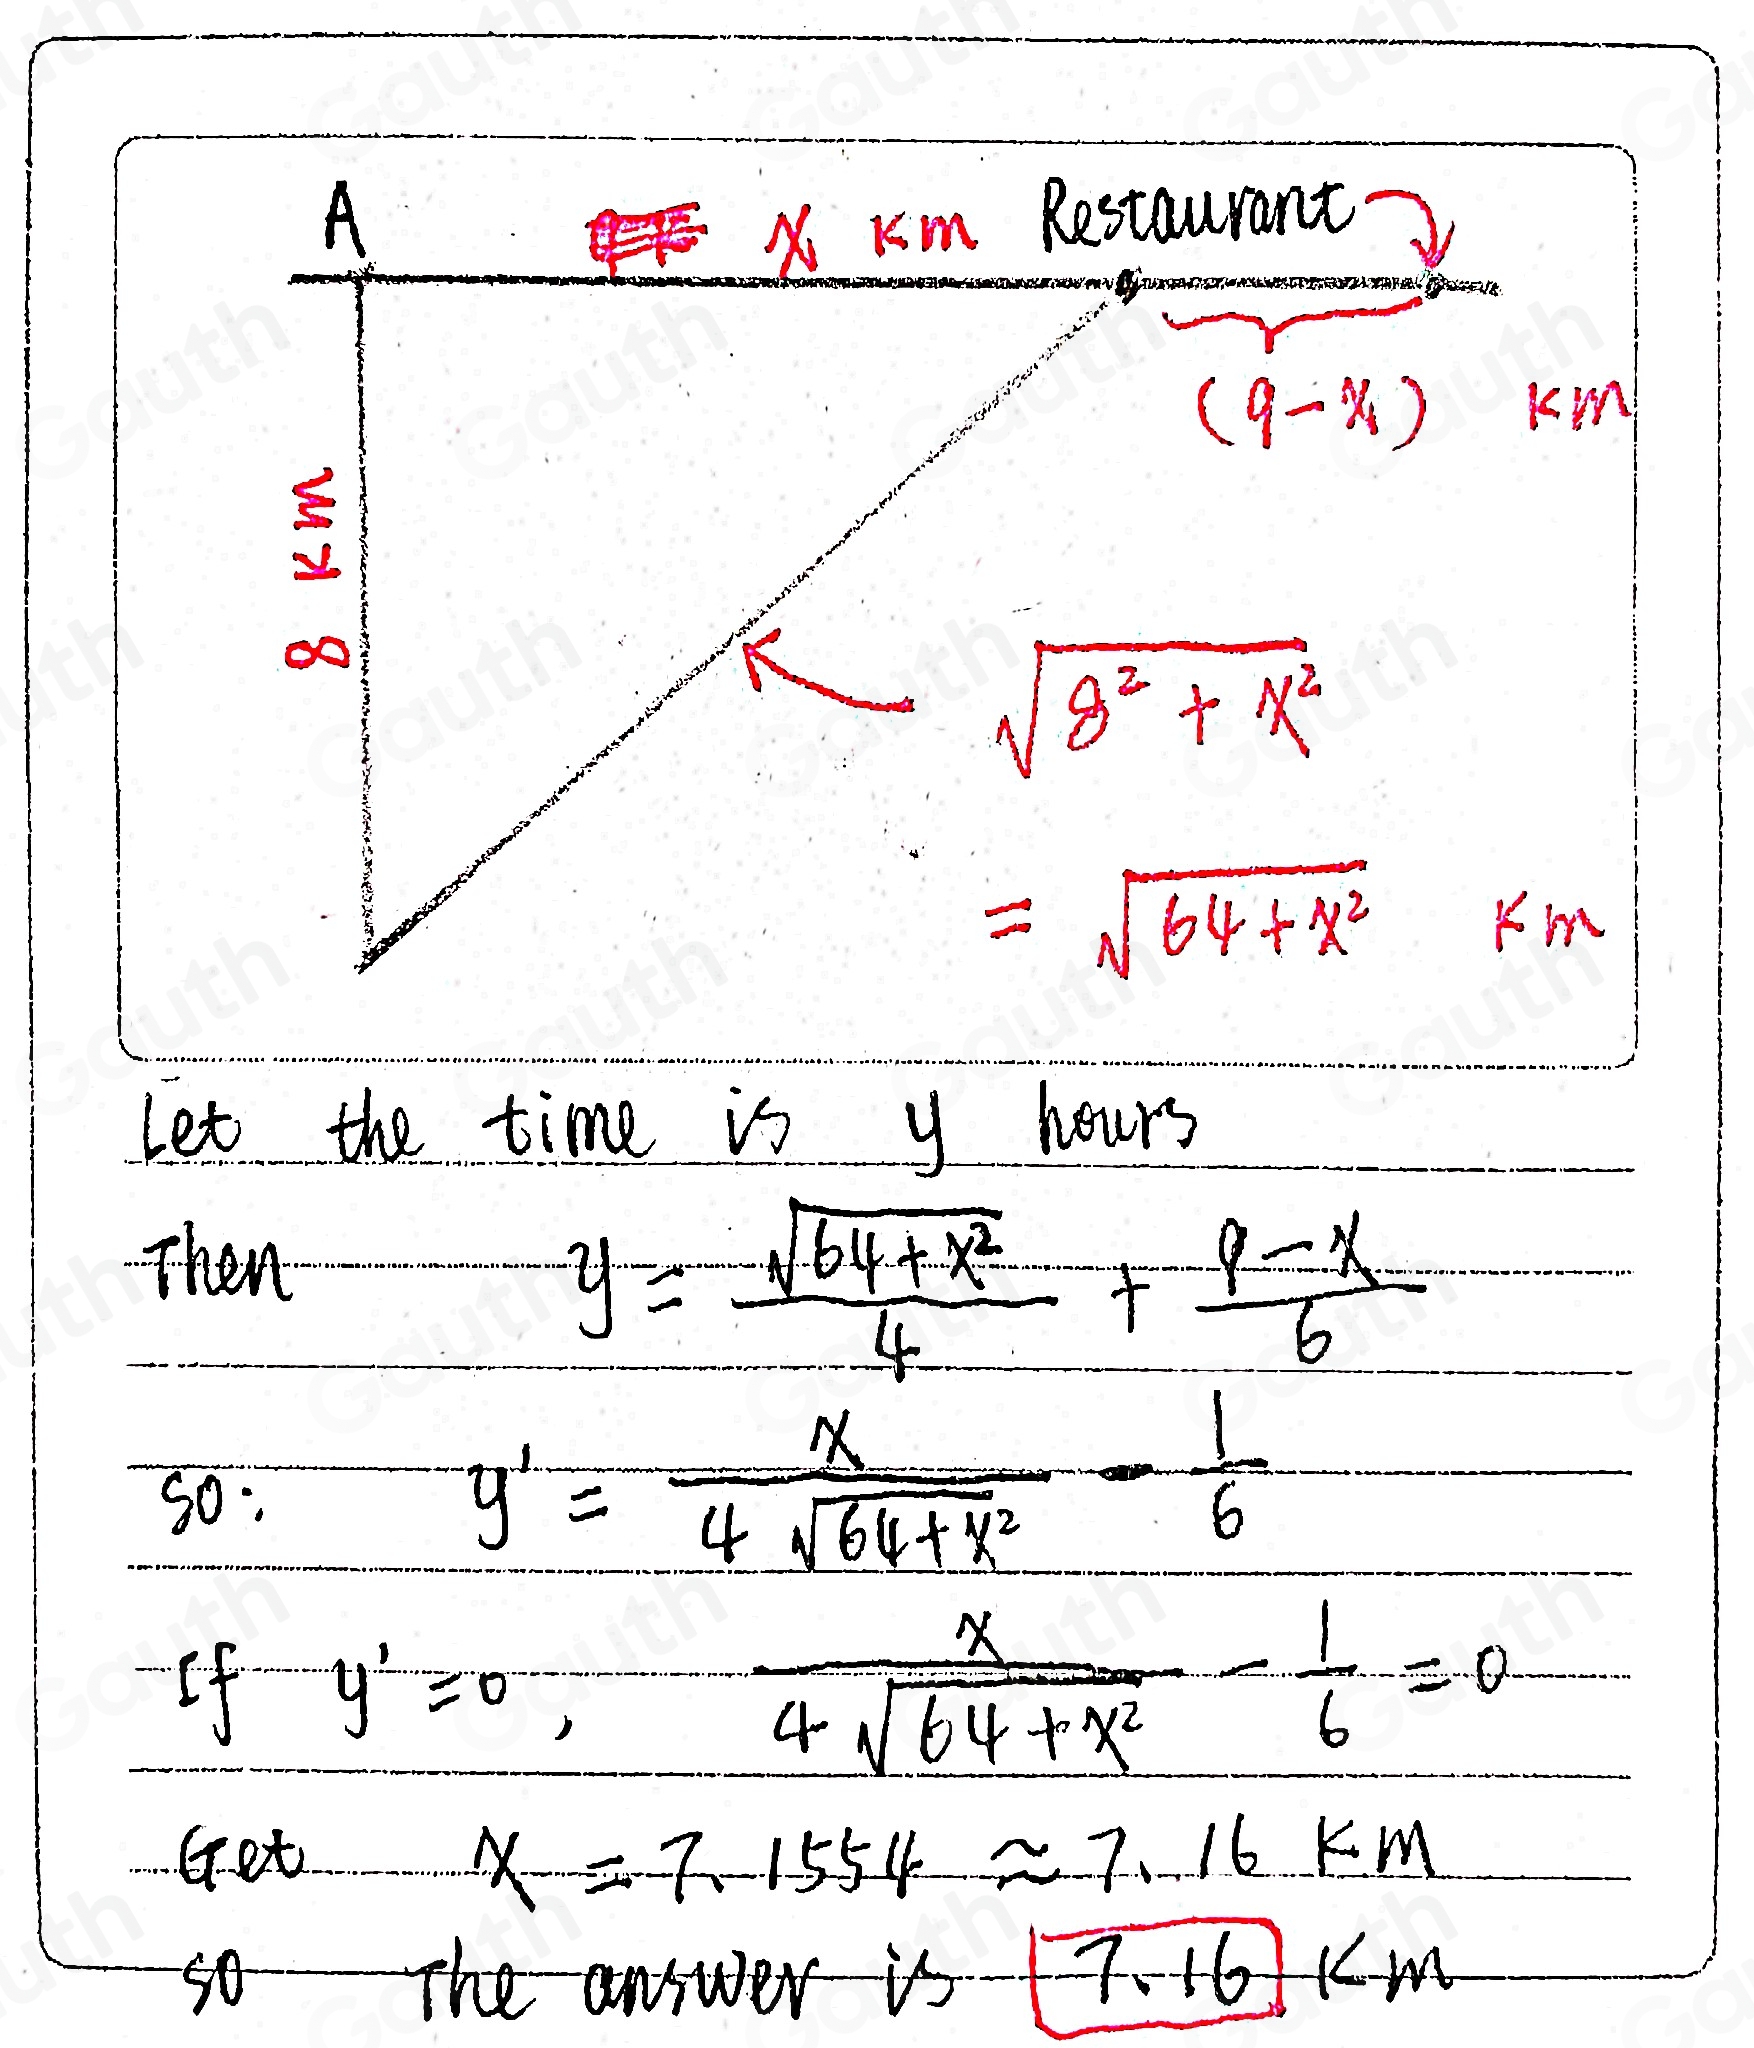 A
x km
Restaurant
(9-x) km
8 km
√(8² + x²)
= √(64+x²) km
Let the time is y hours
Then y = √(64+x²)/4 + (9-x)/6
so: y' = x/(4√(64+x²)) - 1/6
If y'=0, x/(4√(64+x²)) - 1/6 = 0
Get x = 7.1554 ≈ 7.16 km
so The answer is 7.16 km
Gauth